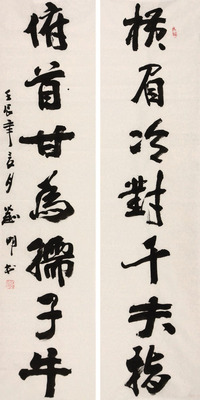 横眉冷對千夫指
俯首甘為孺子牛
壬辰年